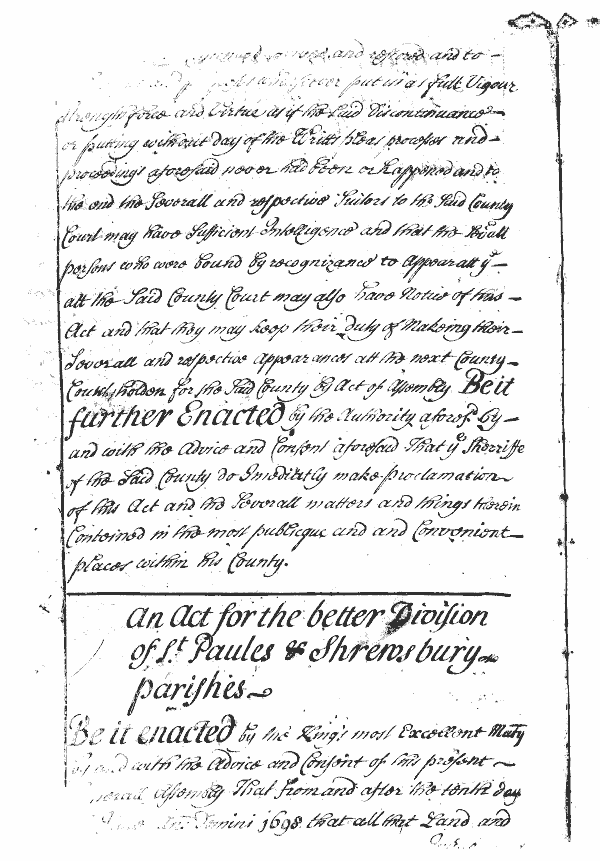 revived and restored and to
put in as full Vigour
strength force and Virtue as if the Said Discontinuance
or puting without day of the Writts pleas process and
proceedings aforesaid never had been or happened and to
the end the Severall and respective Suitors to the Said County
Court may have Sufficient Intelligence and that the
persons who were bound by recognizance to Appear att yͤ
att the Said County Court may also have Notice of this
Act and that they may keep their duty of Makeing their
Severall and respective Appearances att the next County
Court holden for the Said County by Act of Assembly Be it
further Enacted by the Authority aforesᵈ by
and with the Advice and Consent aforesaid That yͤ Sherriffe
of the Said County do Imediatly make proclamation
of this Act and the Severall matters and things therein
Conteined in the most publicque and and Convenient
places within his County.
An Act for the better Division
of Sᵗ Paules & Shrewsbury
parishes
Be it enacted by the King's most Excellent Maty
by and with the Advice and Consent of this present
Generall Assembly That from and after the tenth day
Domini 1698 that all that Land and